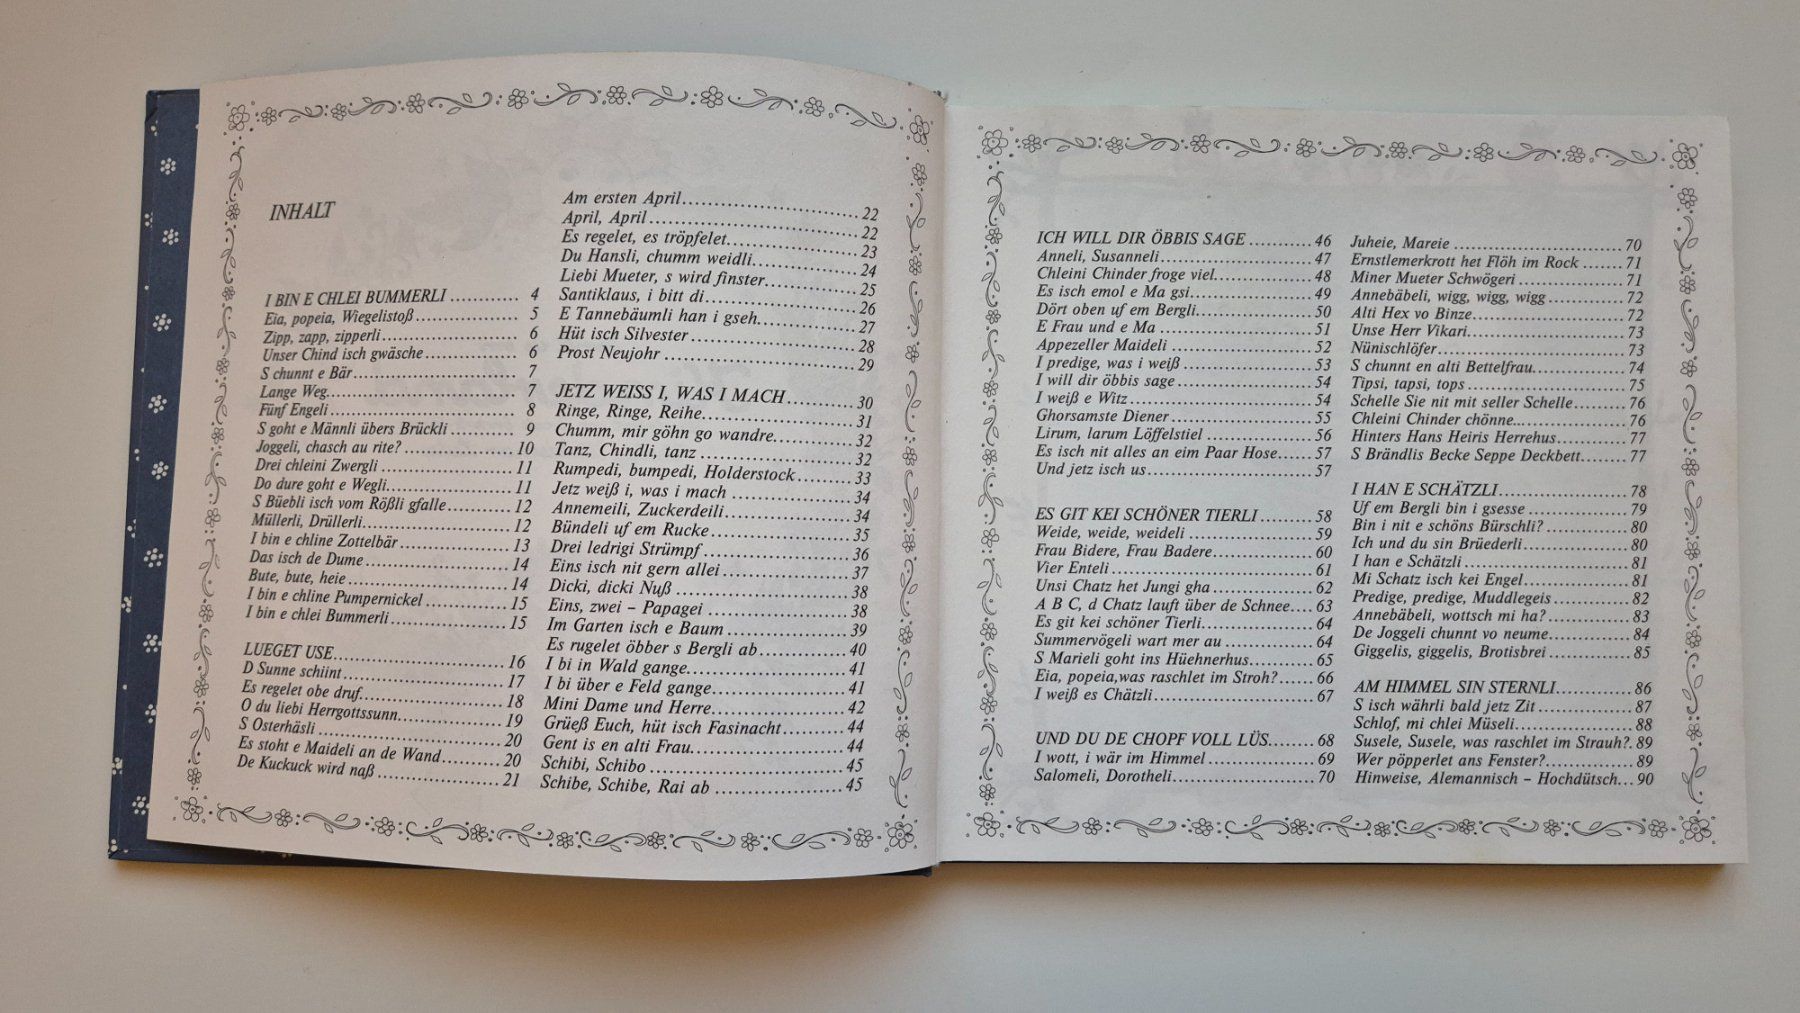 INHALT
I BIN E CHLEI BUMMERLI .......... 4
Eia, popeia, Wiegelistoß .......... 5
Zipp, zapp, zipperli .......... 6
Unser Chind isch gwäsche .......... 6
S chunnt e Bär .......... 7
Lange Weg .......... 7
Fünf Engeli .......... 8
S goht e Männli übers Brückli .......... 9
Joggeli, chasch au rite? .......... 10
Drei chleini Zwergli .......... 11
Do dure goht e Wegli .......... 11
S Büebli isch vom Rößli gfalle .......... 12
Müllerli, Drüllerli .......... 12
I bin e chline Zottelbär .......... 13
Das isch de Dume .......... 14
Bute, bute, heie .......... 14
I bin e chline Pumpernickel .......... 15
I bin e chlei Bummerli .......... 15
LUEGET USE .......... 16
D Sunne schiint .......... 17
Es regelet obe druf .......... 18
O du liebi Herrgottssunn .......... 19
S Osterhäsli .......... 20
Es stoht e Maideli an de Wand .......... 20
De Kuckuck wird naß .......... 21
Am ersten April .......... 22
April, April .......... 22
Es regelet, es tröpfelet .......... 23
Du Hansli, chumm weidli .......... 24
Liebi Mueter, s wird finster .......... 25
Santiklaus, i bitt di .......... 26
E Tannebäumli han i gseh .......... 27
Hüt isch Silvester .......... 28
Prost Neujohr .......... 29
JETZ WEISS I, WAS I MACH .......... 30
Ringe, Ringe, Reihe .......... 31
Chumm, mir göhn go wandre .......... 32
Tanz, Chindli, tanz .......... 32
Rumpedi, bumpedi, Holderstock .......... 33
Jetz weiß i, was i mach .......... 34
Annemeili, Zuckerdeili .......... 34
Bündeli uf em Rucke .......... 35
Drei ledrigi Strümpf .......... 36
Eins isch nit gern allei .......... 37
Dicki, dicki Nuß .......... 38
Eins, zwei – Papagei .......... 38
Im Garten isch e Baum .......... 39
Es rugelet öbber s Bergli ab .......... 40
I bi in Wald gange .......... 41
I bi über e Feld gange .......... 41
Mini Dame und Herre .......... 42
Grüeß Euch, hüt isch Fasinacht .......... 44
Gent is en alti Frau .......... 44
Schibi, Schibo .......... 45
Schibe, Schibe, Rai ab .......... 45
ICH WILL DIR ÖBBIS SAGE .......... 46
Anneli, Susanneli .......... 47
Chleini Chinder froge viel .......... 48
Es isch emol e Ma gsi .......... 49
Dört oben uf em Bergli .......... 50
E Frau und e Ma .......... 51
Appezeller Maideli .......... 52
I predige, was i weiß .......... 53
I will dir öbbis sage .......... 54
I weiß e Witz .......... 54
Ghorsamste Diener .......... 55
Lirum, larum Löffelstiel .......... 56
Es isch nit alles an eim Paar Hose .......... 57
Und jetz isch us .......... 57
ES GIT KEI SCHÖNER TIERLI .......... 58
Weide, weide, weideli .......... 59
Frau Bidere, Frau Badere .......... 60
Vier Enteli .......... 61
Unsi Chatz het Jungi gha .......... 62
A B C, d Chatz lauft über de Schnee .......... 63
Es git kei schöner Tierli .......... 64
Summervögeli wart mer au .......... 64
S Marieli goht ins Hüehnerhus .......... 65
Eia, popeia,was raschlet im Stroh? .......... 66
I weiß es Chätzli .......... 67
UND DU DE CHOPF VOLL LÜS .......... 68
I wott, i wär im Himmel .......... 69
Salomeli, Dorotheli .......... 70
Juheie, Mareie .......... 70
Ernstlemerkrott het Flöh im Rock .......... 71
Miner Mueter Schwögeri .......... 71
Annebäbeli, wigg, wigg, wigg .......... 72
Alti Hex vo Binze .......... 72
Unse Herr Vikari .......... 73
Nünischlöfer .......... 73
S chunnt en alti Bettelfrau .......... 74
Tipsi, tapsi, tops .......... 75
Schelle Sie nit mit seller Schelle .......... 76
Chleini Chinder chönne... .......... 76
Hinters Hans Heiris Herrehus .......... 77
S Brändlis Becke Seppe Deckbett .......... 77
I HAN E SCHÄTZLI .......... 78
Uf em Bergli bin i gsesse .......... 79
Bin i nit e schöns Bürschli? .......... 80
Ich und du sin Brüederli .......... 80
I han e Schätzli .......... 81
Mi Schatz isch kei Engel .......... 81
Predige, predige, Muddlegeis .......... 82
Annebäbeli, wottsch mi ha? .......... 83
De Joggeli chunnt vo neume .......... 84
Giggelis, giggelis, Brotisbrei .......... 85
AM HIMMEL SIN STERNLI .......... 86
S isch währli bald jetz Zit .......... 87
Schlof, mi chlei Müseli .......... 88
Susele, Susele, was raschlet im Strauh? . 89
Wer pöpperlet ans Fenster? .......... 89
Hinweise, Alemannisch – Hochdütsch ... 90